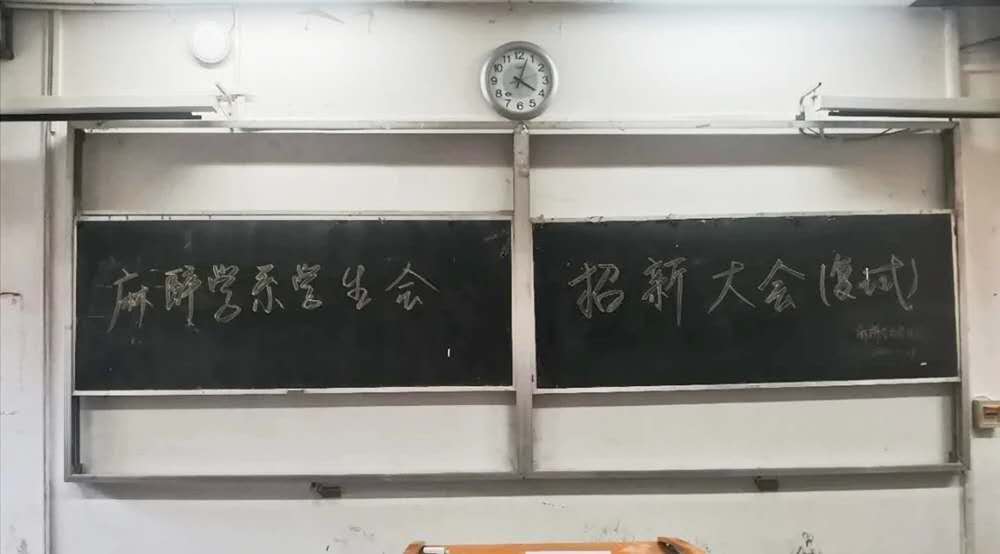 12
1
2
3
4
5
6
7
8
9
10
11
麻醉学系学生会
招新大会(复试)